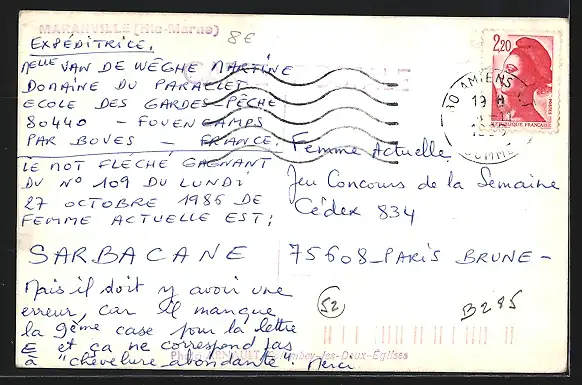 MARANVILLE (Hte-Marne)
8€
EXPÉDITRICE.
Melle VAN DE WEGHE MARTINE
DOMAINE DU PARACLET
ECOLE DES GARDES-PÊCHE
80440 - FOUENCAMPS
PAR BOVES - FRANCE.
LE MOT FLÉCHÉ GAGNANT
DU N° 109 DU LUNDI
27 OCTOBRE 1986 DE
FEMME ACTUELLE EST;
SARBACANE
Mais il doit y avoir une
erreur, car il manque
la 9ème case pour la lettre
E et ça ne correspond pas
à "chevelure abondante". Merci
2,20
RÉPUBLIQUE FRANÇAISE
80 AMIENS
19 H
SOMME
Femme Actuelle
Jeu Concours de la Semaine
Cédex 834
75608_PARIS BRUNE_
52
B285